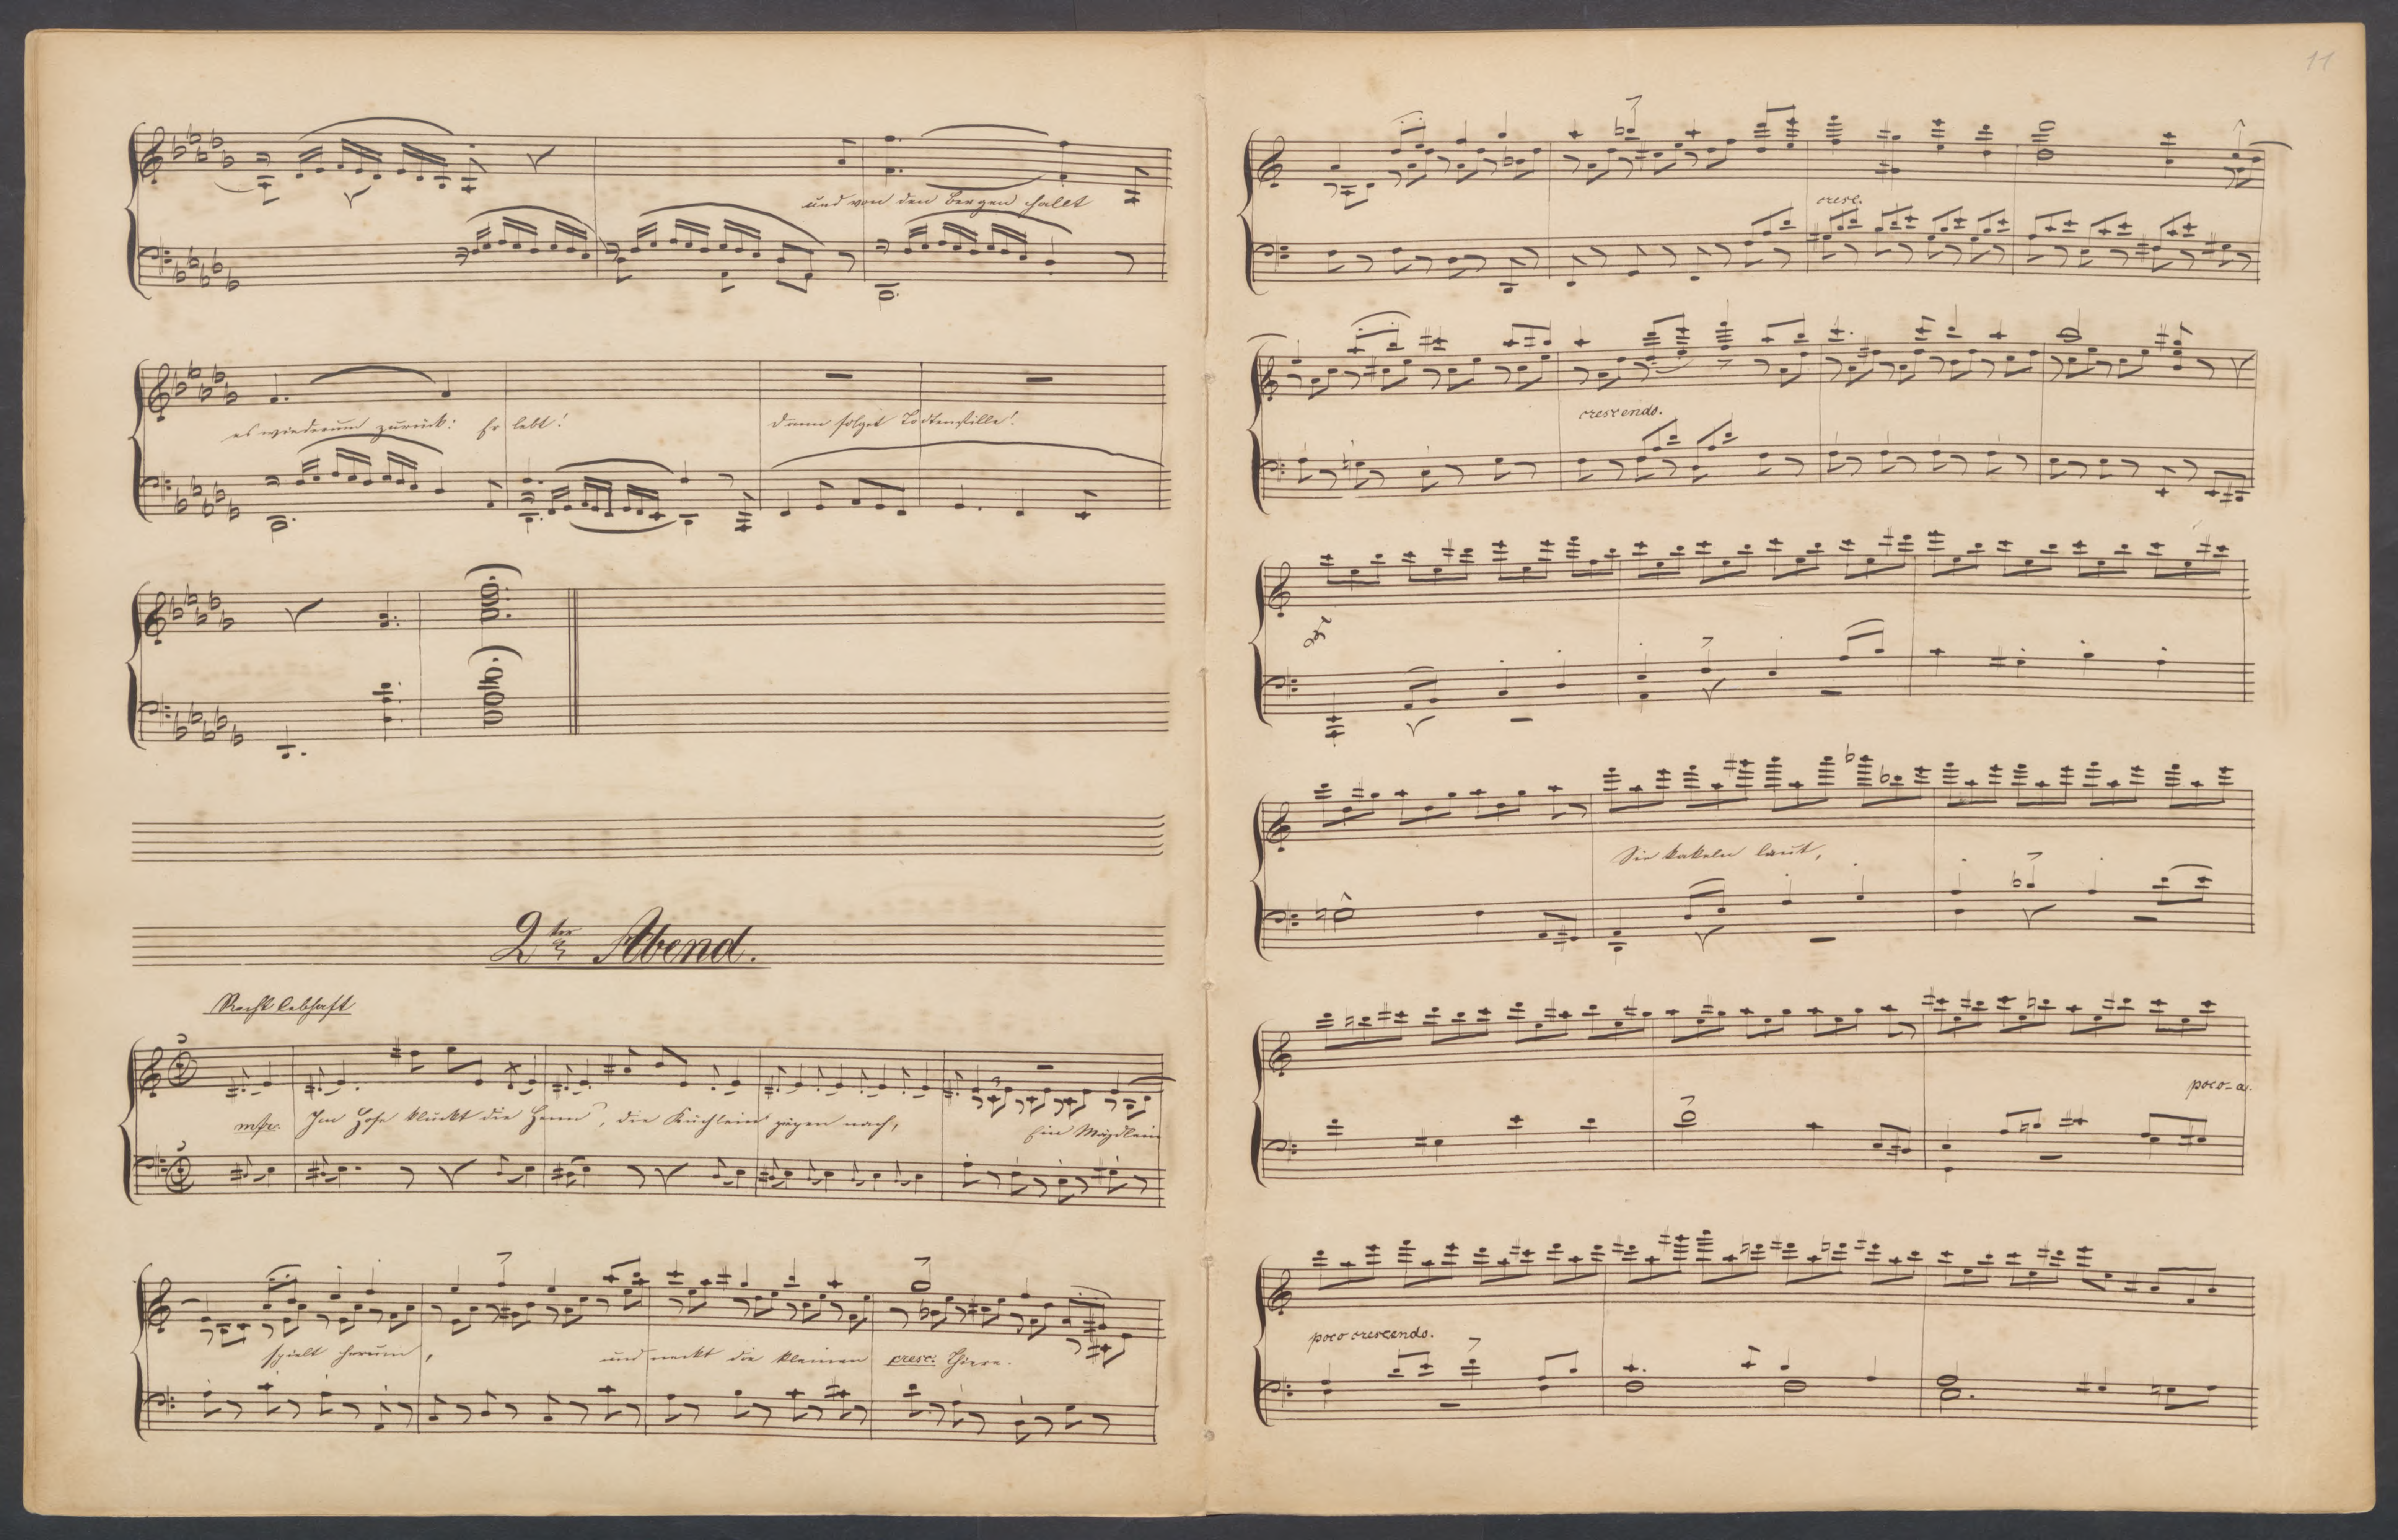 und von den Bergen hallt
es wiederum zurück: Er lebt!
dann folget Todtenstille!
2ter Abend.
Recht lebhaft
Im Hofe kluckt die Henn', die Küchlein zirpen nach,
Ein Mägdlein
spielt herum,
und neckt die kleinen cresc: Thiere.
11
cresc.
crescendo.
Sie kakeln laut,
poco-a.
poco crescendo.